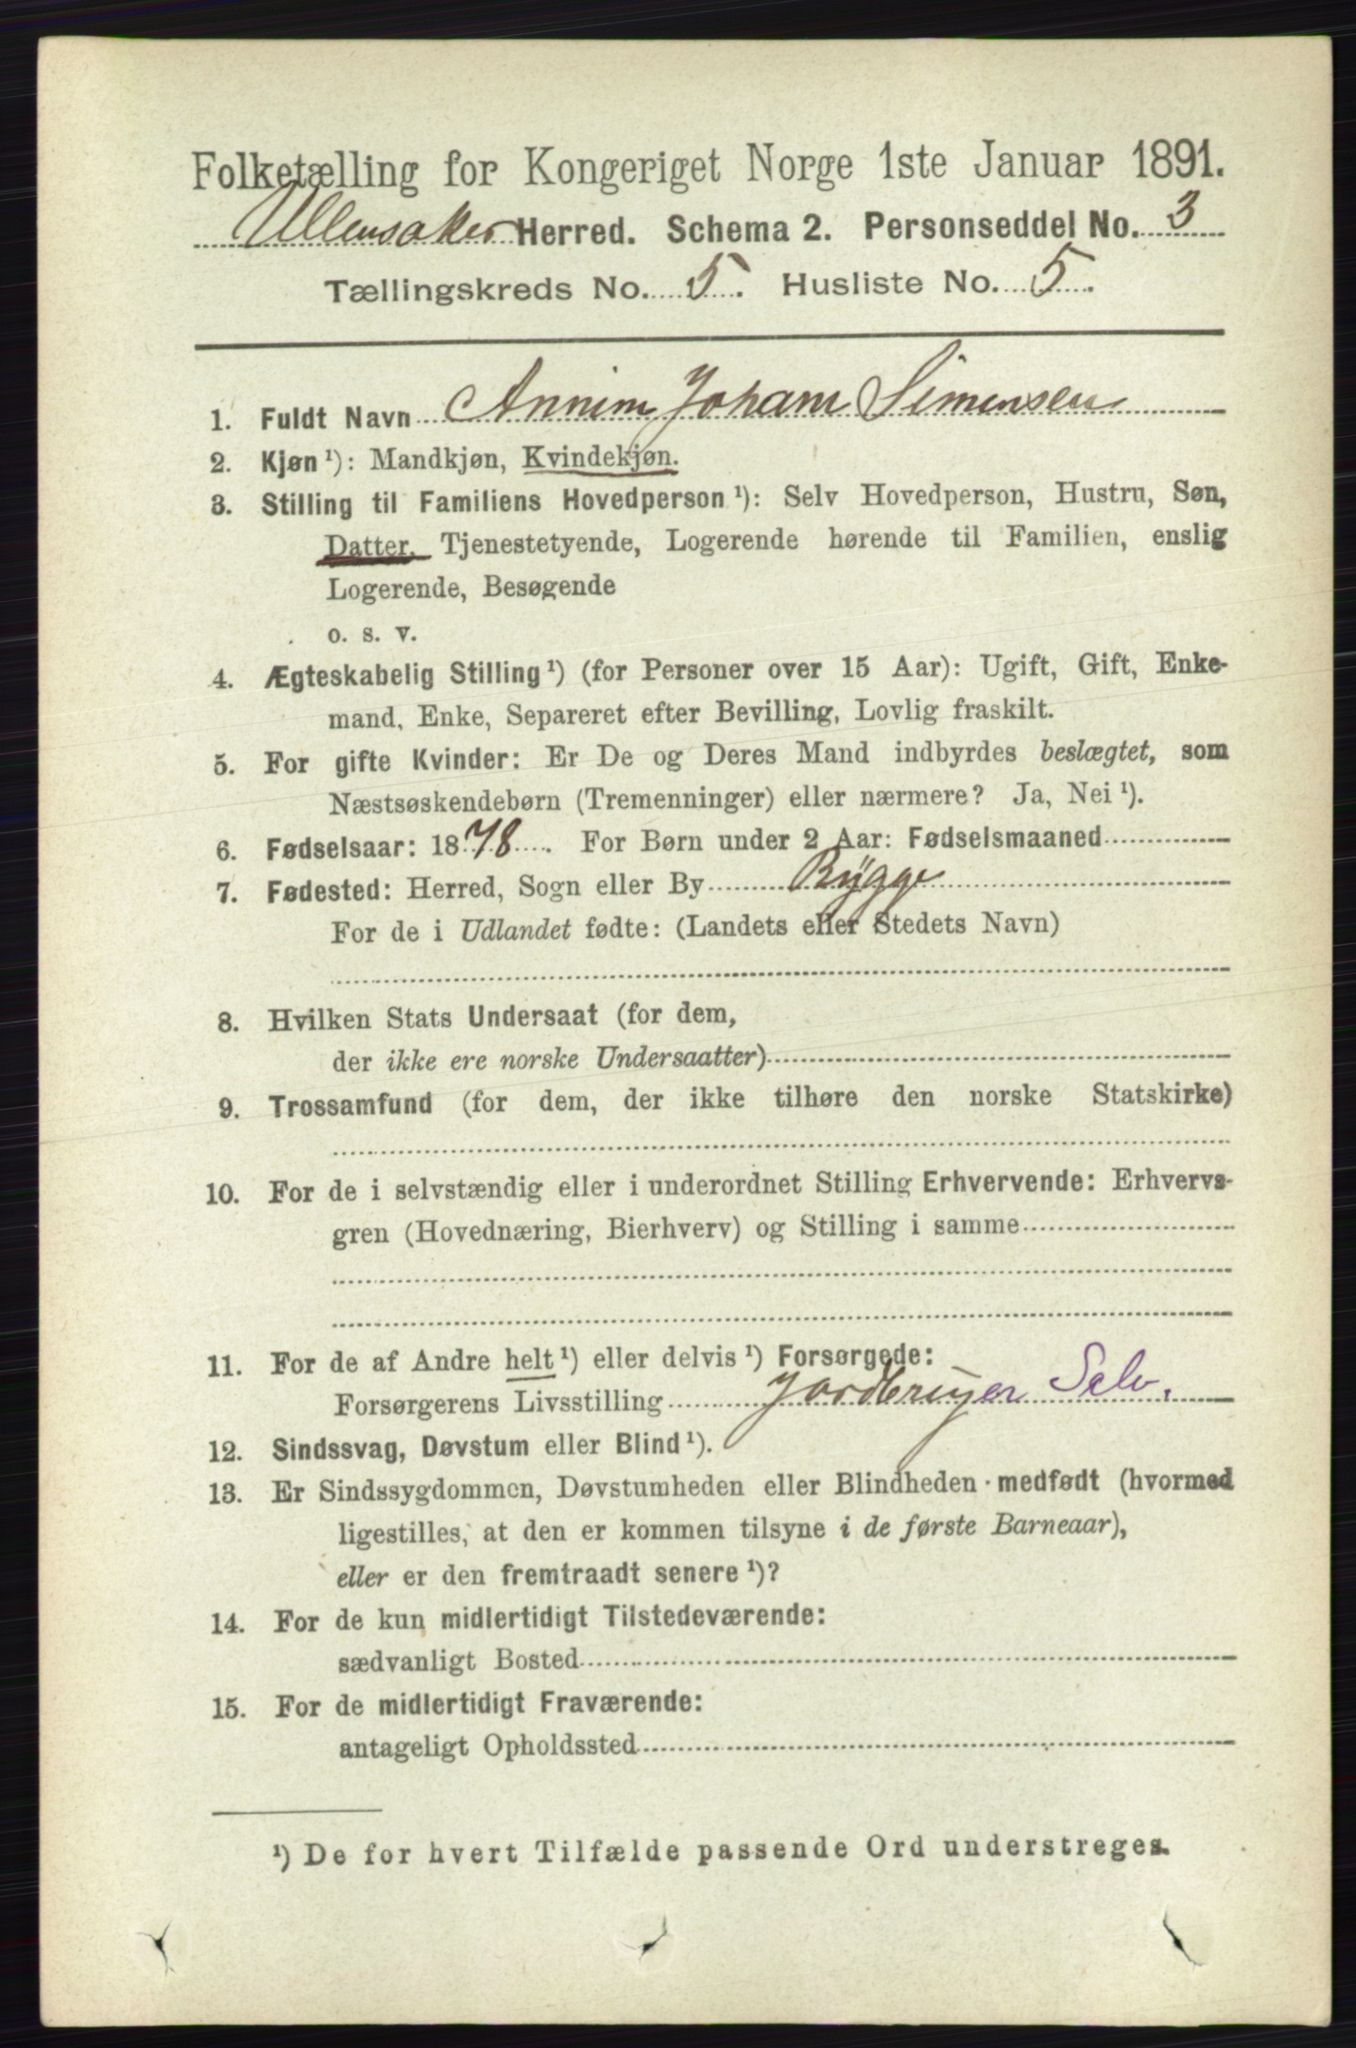 Folketælling for Kongeriget Norge 1ste Januar 1891.
Ullensaker Herred. Schema 2. Personseddel No. 3
Tællingskreds No. 5. Husliste No. 5.
1. Fuldt Navn Simensen
2. Kjøn ¹): Mandkjøn, Kvindekjøn.
3. Stilling til Familiens Hovedperson ¹): Selv Hovedperson, Hustru, Søn,
Datter, Tjenestetyende, Logerende hørende til Familien, enslig
Logerende, Besøgende
o. s. v.
4. Ægteskabelig Stilling ¹) (for Personer over 15 Aar): Ugift, Gift, Enke-
mand, Enke, Separeret efter Bevilling, Lovlig fraskilt.
5. For gifte Kvinder: Er De og Deres Mand indbyrdes beslægtet, som
Næstsøskendebørn (Tremenninger) eller nærmere? Ja, Nei ¹).
6. Fødselsaar: 1878. For Børn under 2 Aar: Fødselsmaaned
7. Fødested: Herred, Sogn eller By Rygge
For de i Udlandet fødte: (Landets eller Stedets Navn)
8. Hvilken Stats Undersaat (for dem,
der ikke ere norske Undersaatter)
9. Trossamfund (for dem, der ikke tilhøre den norske Statskirke)
10. For de i selvstændig eller i underordnet Stilling Erhvervende: Erhvervs-
gren (Hovednæring, Bierhverv) og Stilling i samme
11. For de af Andre helt ¹) eller delvis ¹) Forsørgede:
Forsørgerens Livsstilling Jordbruger Selv.
12. Sindssvag, Døvstum eller Blind ¹).
13. Er Sindssygdommen, Døvstumheden eller Blindheden medfødt (hvormed
ligestilles, at den er kommen tilsyne i de første Barneaar),
eller er den fremtraadt senere ¹)?
14. For de kun midlertidigt Tilstedeværende:
sædvanligt Bosted
15. For de midlertidigt Fraværende:
antageligt Opholdssted
¹) De for hvert Tilfælde passende Ord understreges.